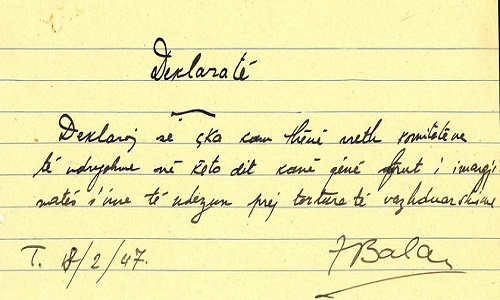 Deklaratë
Deklaroj se çka kam thënë rreth komitetëve
të ndryshme në këto dit kanë qënë frut i imagji
natës s'ime të ndezun prej torturatë vazhduarshme
T. 8/2/47.
Bala